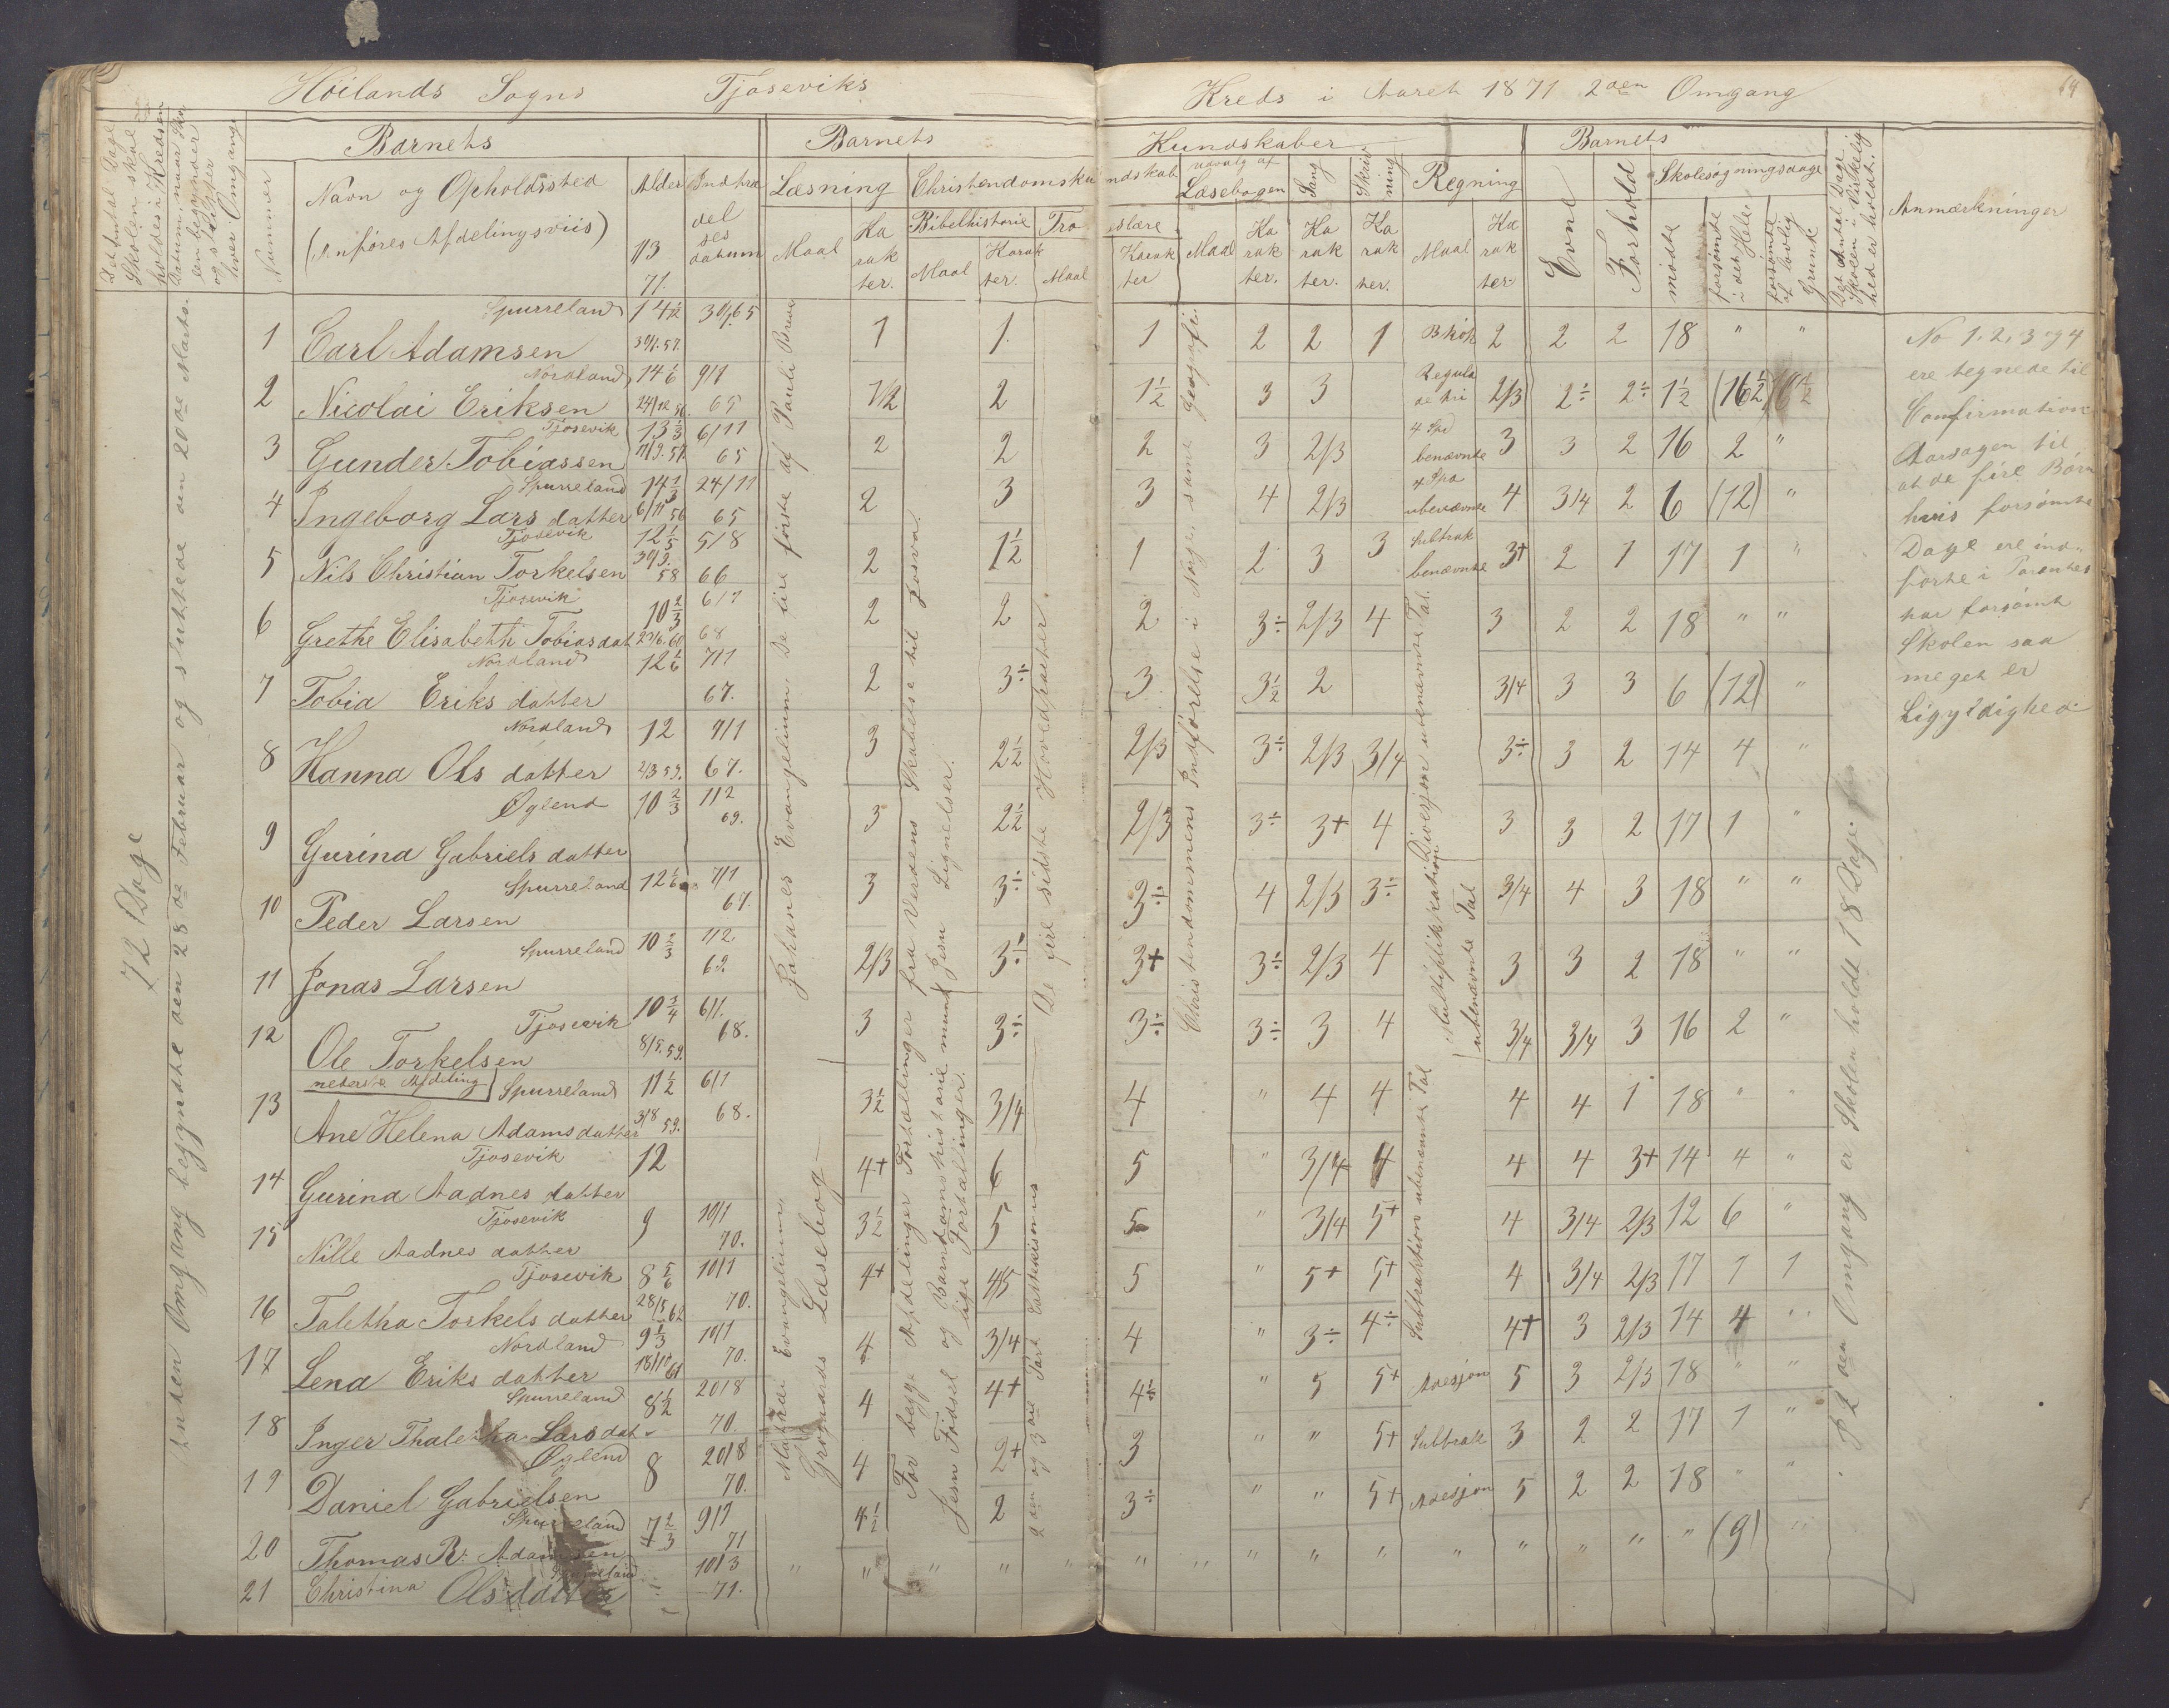 Höilands Sogns Tjoseviks Kreds i Aaret 1871 2den Omgang
64
Barnets Barnets Kundskaber Barnets
Nummer
Navn og Opholdssted
(Anföres Afdelingsviis)
Alder
1/3
71.
Indtræ
del
ses
datum
Læsning
Maal
Ka
rak
ter.
Christendomsku ndskab
Bibelhistorie
Maal
Karak
ter.
Tro eslære
Maal
Karak
ter
udvalg af
Læsebogen
Maal
Ka
rak
ter.
Sang
Ka
rak
ter.
Skriv
ning
Ka
rak
ter.
Regning
Maal
Ka
rak
ter.
Evne
Forhold
Skolesøgningsdage
mödte
forsömte
i det Hele
forsömte
af lovlig
Grund
Anmærkninger
72 Dage
Anden Omgang begyndte den 28de Februar og sluttede den 20de Marts.
1 Carl Adamsen Spurreland 14 1/12 30/1.57. 30/1.65 1 1. 1 2 2 1 Brök 2 2 2 18 " "
2 Nicolai Eriksen Nordland 14 1/6 24/12 56. 9/1 65 1/2 2 1½ 3 3 Regula de tri 2/3 2÷ 2÷ 1½ (16½) 16½
3 Gunder Tobiassen Tjosevik 13 1/3 11/9.57. 6/11 65 2 2 2 3 2/3 4 Spe benævnte 3 3 2 16 2 "
4 Ingeborg Lars datter Spurreland 14 1/3 6/11 56 24/11 65 2 3 3 4 2/3 4 Spe ubenævnte 4 3/4 2 6 (12) "
5 Nils Christian Torkelsen Tjosevik 12 1/5 30/9. 58 5/8 66 2 1½ 1 2 3 3 Subtrak benævnte 3+ 2 1 17 1 "
6 Grethe Elisabeth Tobiasdat Tjosevik 10 2/3 6/7 68 2 2 2 3÷ 2/3 4 3 2 2 18 " "
7 Tobia Eriks datter Nordland 12 1/6 7/1 67. 2 3÷ 3 3½ 2 3/4 3 3 6 (12) "
8 Hanna Ols datter Nordland 12 2/3 59. 9/1 67. 3 2½ 2/3 3÷ 2/3 3/4 3÷ 3 2 14 4 "
9 Gurina Gabriels datter Øglend 10 2/3 1/2 69. 3 2½ 2/3 3÷ 3+ 4 3 3 2 17 1 "
10 Peder Larsen Spurreland 12 1/6 7/1 67. 3 3÷ 3÷ 4 2/3 3÷ 3/4 4 3 18 " "
11 Jonas Larsen Spurreland 10 2/3 1/2. 69. 2/3 3÷ 3+ 3÷ 2/3 4 3 3 2 18 " "
12 Ole Torkelsen Tjosevik 10 3/4 8/5.59. 6/1. 68. 3 3÷ 3÷ 3÷ 3 4 3/4 3/4 3 16 2 "
nederste Afdeling
13 Ane Helena Adamsdatter Spurreland 11½ 3/8 59. 6/1 68. 3½ 3/4 4 " 4 4 4 4 1 18 " "
14 Gurina Aadnes datter Tjosevik 12 4+ 6 5 " 3/4 4 4 4 3+ 14 4 "
15 Nille Aadnes datter Tjosevik 9 10/1 70. 3½ 5 5 " 3/4 5+ 4 3/4 2/3 12 6 "
16 Taletha Torkels datter Tjosevik 8 5/6 28/5 62 10/1 70. 4+ 4/5 5 " 5+ 5+ 4 3/4 2/3 17 1 1
17 Lena Eriks datter Nordland 9 1/3 18/10 61 10/1 70. 4 3/4 4 " 3÷ 4÷ 4+ 3 2/3 14 4 "
18 Inger Thaletha Larsdat Spurreland 8½ 20/8 70. 4 4+ 4½ " 5 5+ Adesjon 5 3 2/3 18 " "
19 Daniel Gabrielsen Øglend 8 20/8 70. 4 2+ 3 " " 5+ Subtrak 3 2 2 17 1 "
20 Thomas R. Adamsen Spurreland 7 2/3 9/1 71 4½ 2 3÷ " " 5+ Adesjon 5 2 2 18 " "
21 Christina Olsdatter 10/3 71. " " " " " " " " " " " " " " (9) "
Johanes Evangelium. De fire förste af Pauli Breve
Mathæi Evangelium
Grögaards Læsebog
For begge Afdelinger Fortællinger fra Verdens Skabelse til Josva.
Jesu Födsel og Barndomshistorie samt Jesu Lignelser.
De fire sidste Hovedparter.
2den og 3die Part
Christendommens Indförelse i Norge samt Geografi.
Divesjon ubenævnte Tal.
Multiplikation ubenævnte Tal
Subtraktion ubenævnte Tal
I 2den Omgang er Skolen holdt 18 Dage.
No 1. 2, 3 og 4
ere tegnede til
Confirmation
Aarsagen til
at de fire Börn
hvis forsömte
Dage ere ind-
förte i Parentes
har forsömt
Skolen saa
meget er
Ligyldighed